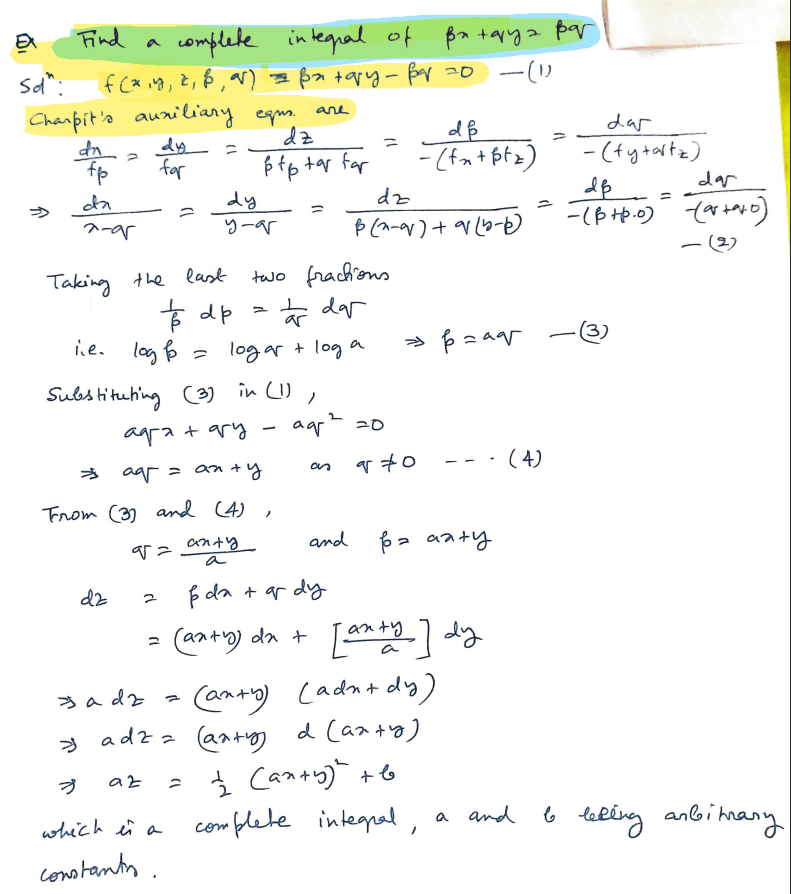 Ex Find a complete integral of px + qy = pq
Solⁿ: f(x, y, z, p, q) ≡ px + qy - pq = 0 — (1)
Charpit's auxiliary eqns. are
dx/f_p = dy/f_q = dz/(p f_p + q f_q) = dp/-(f_x + p f_z) = dq/-(f_y + q f_z)
⇒ dx/(x-q) = dy/(y-q) = dz/(p(x-q) + q(y-p)) = dp/-(p+p.0) = dq/-(q+q.0) — (2)
Taking the last two fractions
1/p dp = 1/q dq
i.e. log p = log q + log a ⇒ p = aq — (3)
Substituting (3) in (1),
aqx + qy - aq² = 0
⇒ aq = ax + y as q ≠ 0 --- (4)
From (3) and (4),
q = (ax+y)/a and p = ax+y
dz = p dx + q dy
= (ax+y) dx + [(ax+y)/a] dy
⇒ a dz = (ax+y) (adx + dy)
⇒ adz = (ax+y) d(ax+y)
⇒ az = 1/2 (ax+y)² + b
which is a complete integral, a and b being arbitrary
constants.